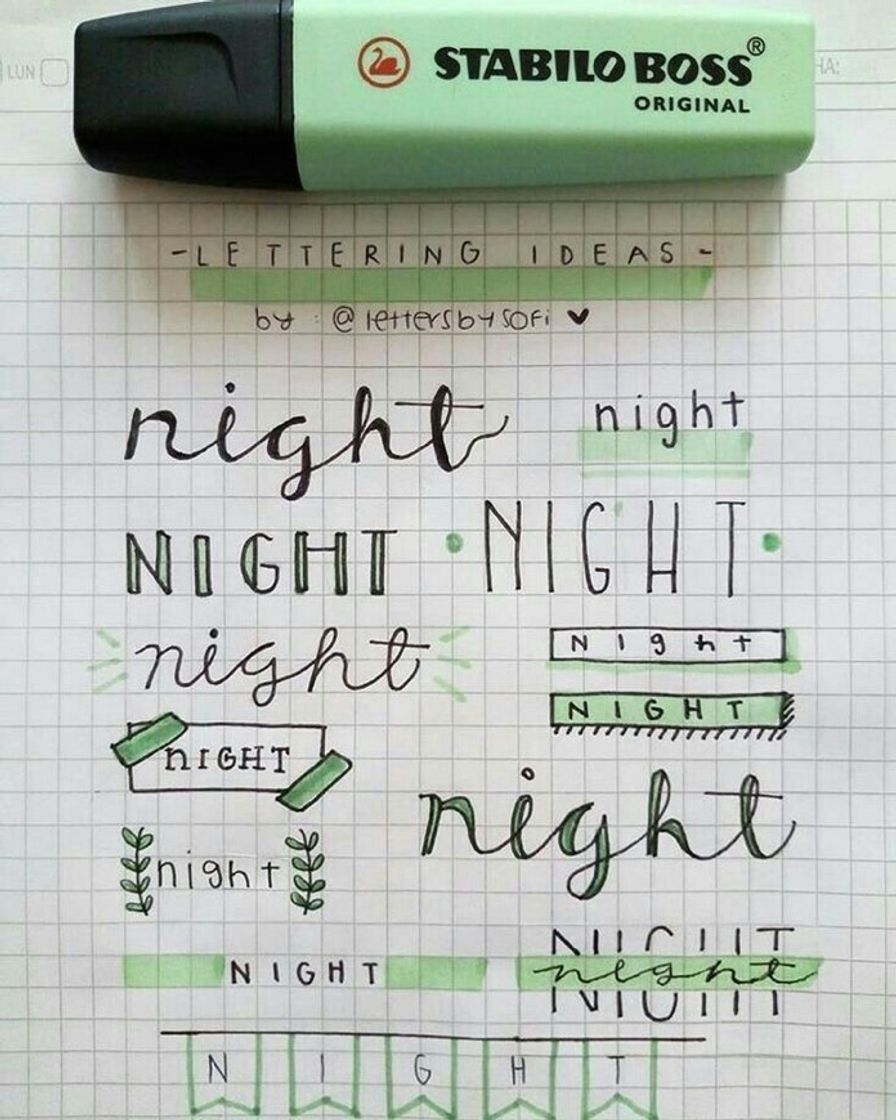 STABILO BOSS®
ORIGINAL
LUN
HA:
-LETTERING IDEAS-
by : @lettersbysofi ♥
night
night
NIGHT
NIGHT
night
Night
NIGHT
nIGHT
night
night
NIGHT
NIGHT
night
NIGHT